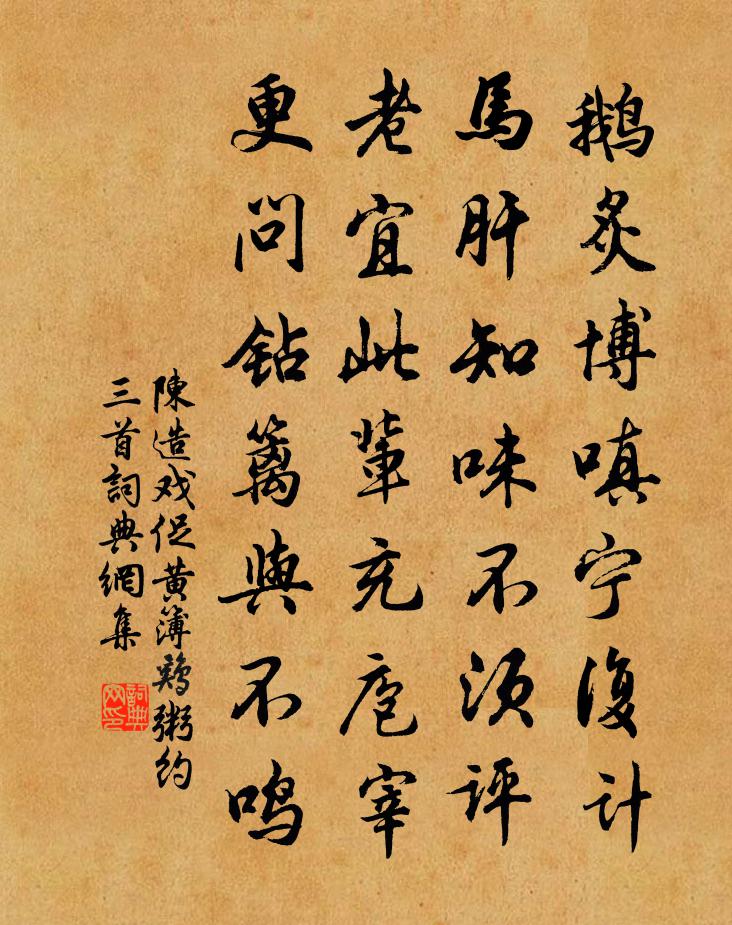 鵝炙博嗔宁復计
馬肝知味不须评
老宜此輩充庖宰
更问钻篱與不鸣
陳造戏促黄簿鷄粥约
三首詞典網集
詞典
网印